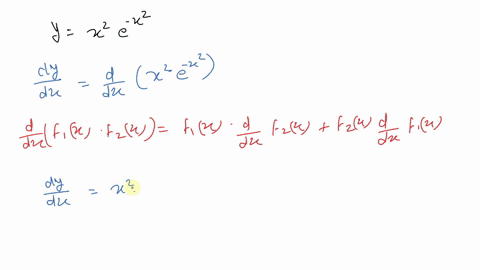 y = x² e^{-x²}
dy/dx = d/dx (x² e^{-x²})
d/dx (f₁(x) · f₂(x)) = f₁(x) · d/dx f₂(x) + f₂(x) d/dx f₁(x)
dy/dx = x²